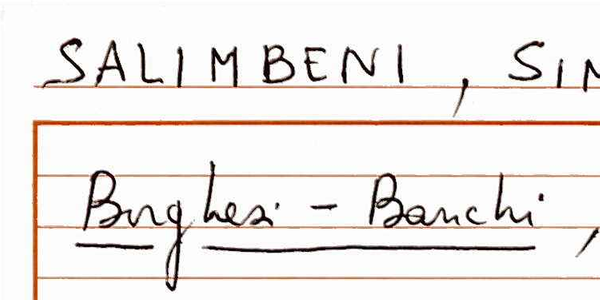 SALIMBENI, SIM
Borghesi - Banchi,